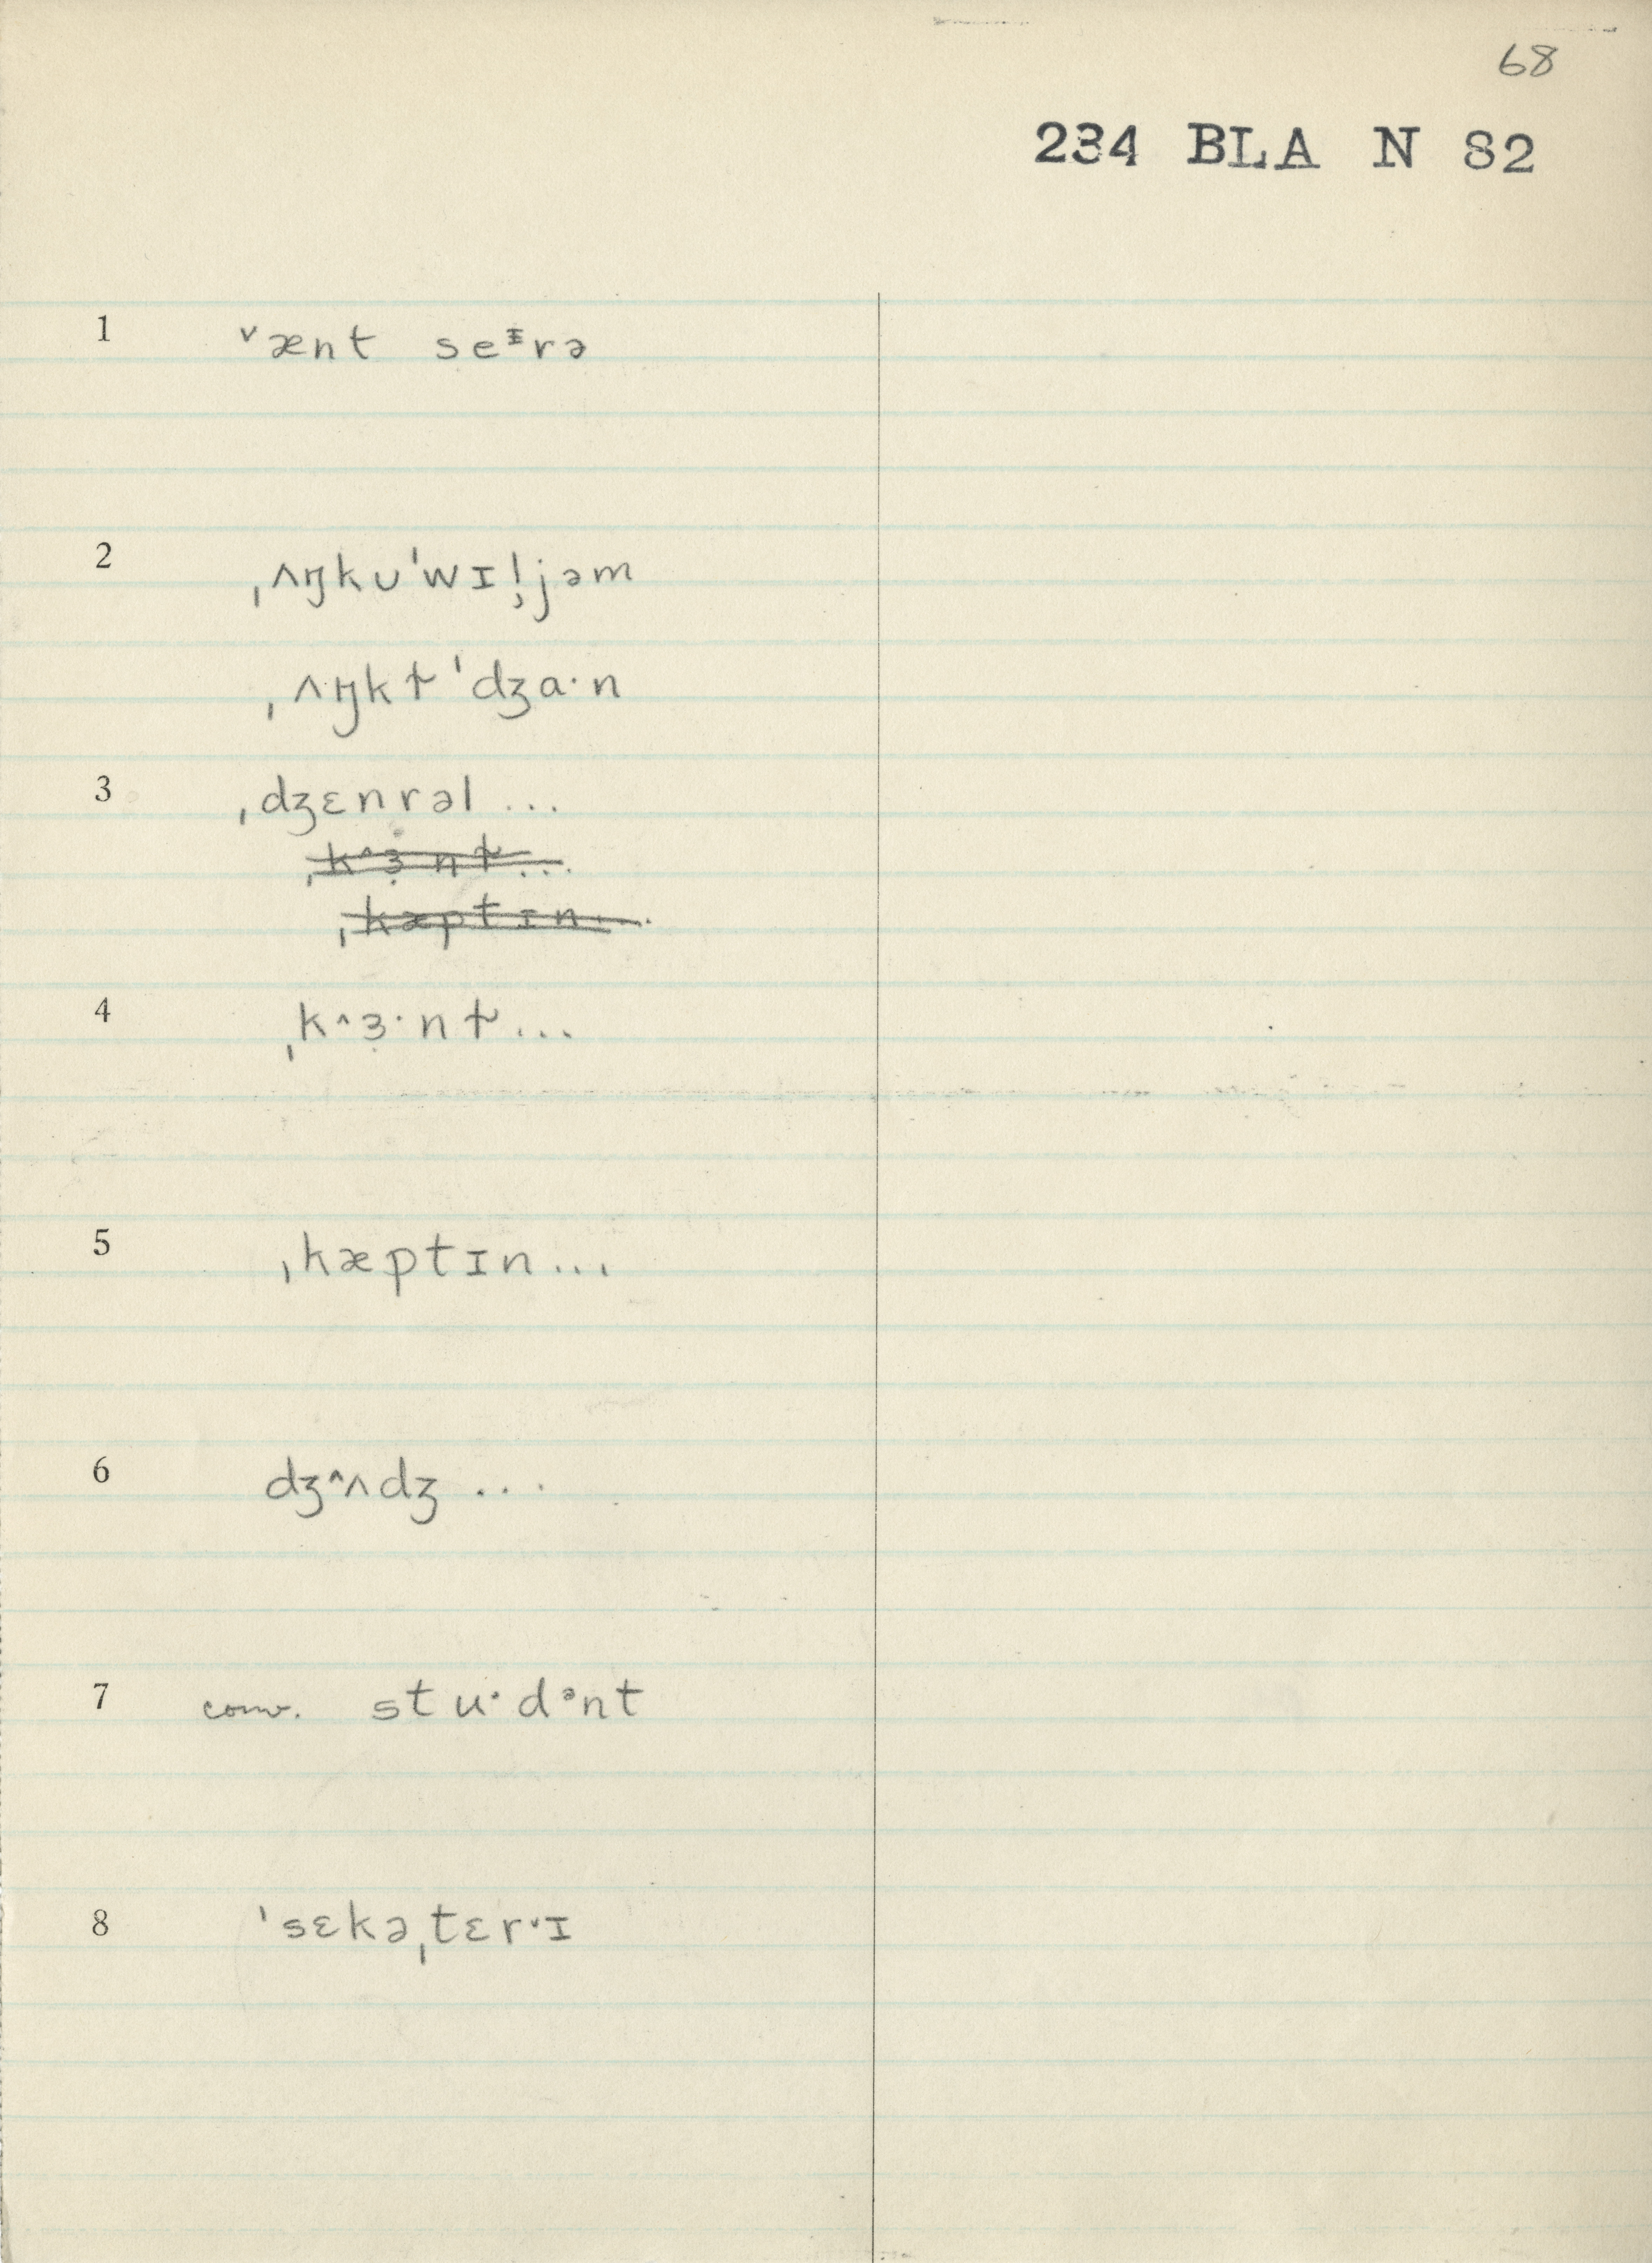 68
234 BLA N 82
1 ˅ænt seᶧrə
2 ˌʌŋkʊˈwɪl̡̩jəm
ˌʌŋkƚˈdʒaˑn
3 ˌdʒɛnrəl ...
ˌk˄ɜ̣ nƚ...
ˌkæptɪn...
4 ˌk˄ɜ̣ˑnƚ...
5 ˌkæptɪn...
6 dʒ˄ʌdʒ ...
7 conv. stuˑdᵊnt
8 ˈsɛkəˌtɛr˅ɪ